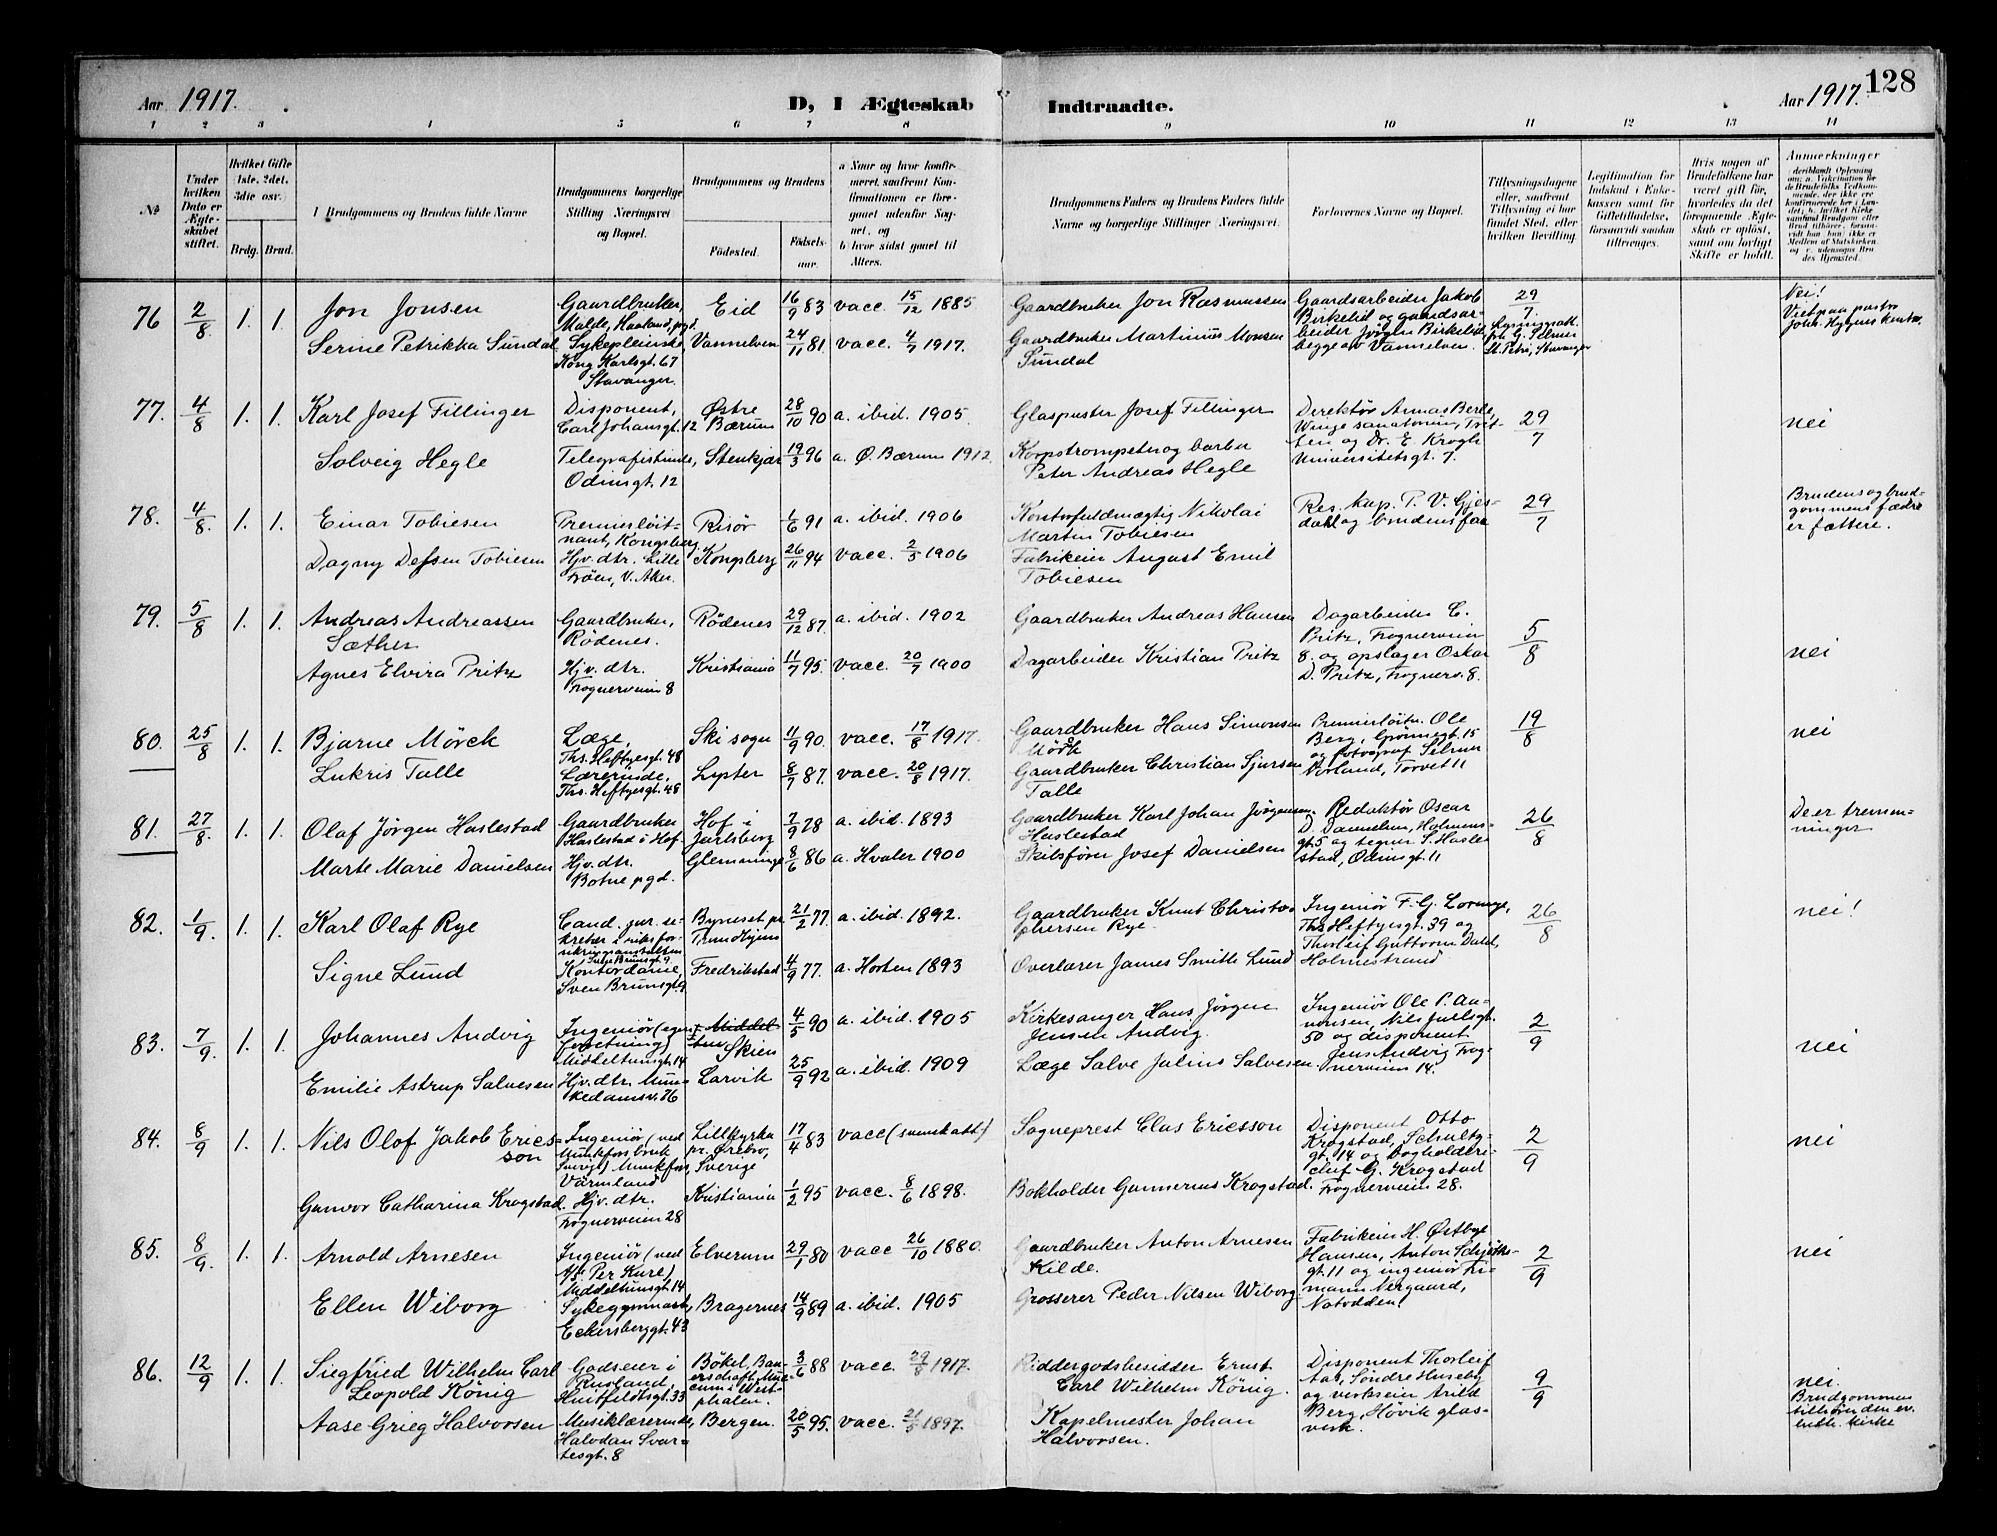 128
Aar 1917. D, I Ægteskab Indtraadte. Aar 1917.
1 2 3 4 5 6 7 8 9 10 11 12 13 14
№
Under hvilken Dato er Ægteskabet stiftet.
Hvilket Gifte 1ste, 2det, 3die osv.
Brdg. Brud.
Brudgommens og Brudens fulde Navne
Brudgommens borgerlige Stilling Næringsvei og Bopæl.
Brudgommens og Brudens
Fødested.
Fødselsaar.
a Naar og hvor konfirmeret, saafremt Konfirmationen er foregaaet udenfor Sognet, og
b hvor sidst gaaet til Alters.
Brudgommens Faders og Brudens Faders fulde Navne og borgerlige Stillinger Næringsvei.
Forlovernes Navne og Bopæl.
Tillysningsdagene eller, saafremt Tillysning ei har fundet Sted, efter hvilken Bevilling.
Legitimation for Indskud i Enkekassen samt for Giftetilladelse, forsaavidt saadan tiltrænges.
Hvis nogen af Brudefolkene har været gift før, hvorledes da det foregaaende Ægteskab er opløst, samt om lovligt Skifte er holdt.
Anmerkninger
76 2/8 1. 1. Jon Jonsen
Gaardbruker, Molde, Haaland, pgd.
Eid 16/9 83 vacc. 15/12 1885
Gaardbruker Jon Rasmussen
Gaardsarbeider Jakob Birkelid og gaardsarbeider Jörgen Birkelid, begge av Vannelven.
29/7.
Nei!
Serine Petrikka Sundal
Sykepleierske Kong Karlsgt. 67 Stavanger.
Vannelven 24/11 81 vacc. 4/7 1917.
Gaardbruker Martinus Monsen Sundal
St. Petri, Stavanger
77. 4/8 1. 1. Karl Josef Fillinger
Disponent, Carl Johansgt. 12
Østre Bærum 28/10 90 a. ibid. 1905.
Glaspuster Josef Fillinger
Direktør Berle, sanatorium, og Dr. E. Krogh Universitetsgt. 7.
29/7
nei
Solveig Hegle
Telegrafistinde, Odinsgt. 12
Stenkjær 19/3 96 a. Ø. Bærum 1912.
Korpstrompeter og barber Peter Andreas Hegle
78. 4/8. 1. 1. Einar Tobiesen
Premierløitnant, Kongsberg
Risør 1/6 91 a. ibid. 1906
Kontorfuldmægtig Nikolai Martin Tobiesen
Res. kap. P. V. Gjesdahl og brudens far
29/7
Brudens og brudgommens fædre er fættere.
Dagny Dessen Tobiesen
Hjv. dtr. Lille Frøen, V. Aker.
Kongsberg 26/11 94 vacc. 2/3 1906
Fabrikeier August Emil Tobiesen
79. 5/8 1. 1. Andreas Andreassen Sæther
Gaardbruker, Rödenes.
Rödenes 29/12 87. a. ibid. 1902
Gaardbruker Andreas Hansen
Dagarbeider C. Pritz, Frognerveien 8. og opslager Oskar D. Pritz, Frognerv. 8.
5/8
nei
Agnes Elvira Pritz
Hjv. dtr. Frognerveien 8
Kristiania 11/7 95. vacc. 20/7 1900
Dagarbeider Kristian Pritz
80. 25/8 1. 1. Bjarne Mörck
Læge, Ths. Heftyesgt. 48
Ski sogn 11/9 90. vacc. 17/8 1917.
Gaardbruker Hans Simonsen Mörk
Premierløitn. Ole Berg, Grønnegt. 15 og fotograf Selmer Norland, Torvet 11
19/8
nei
Lukris Talle
Lærerinde, Ths. Heftyesgt. 48
Lyster 8/7 87. vacc. 20/8 1917.
Gaardbruker Christian Sjursen Talle
81. 27/8. 1. 1. Olaf Jørgen Haslestad
Gaardbruker Haslestad i Hof.
Hof i Jarlsberg 7/9 78 a. ibid. 1893
Gaardbruker Karl Johan Jörgensen Haslestad
Redaktör Oscar D. Danielsen, Holmensgt. 5 og tegner S. Haslestad, Odinsgt. 11
26/8
De er tremenninger
Marte Marie Danielsen
Hjv. dtr. Botne pgd.
Glemminge 8/6 86 a. Hvaler 1900
Skibsfører Josef Danielsen
82. 1/9. 1. 1. Karl Olaf Rye
Cand. jur. sekretær i riksforsikringsanstalten
Byneset pr Trondhjem 21/2 77 a. ibid. 1892.
Gaardbruker Knut Christophersen Rye.
Ingeniør F. G. Ths Heftyesgt. 39 og Thorleif Guttorm Dahl, Holmestrand
26/8
nei!
Signe Lund
Kontordame, Sven Brunsgt. 9
Fredrikstad 4/9 77. a. Horten 1893
Overlærer James Smith Lund
83. 7/9. 1. 1. Johannes Andvig
Ingeniør (egen forretning) Middeltunsgt. 14
Skien 4/5 90 a. ibid. 1905
Kirkesanger Hans Jörgen Jensen Andvig.
Ingeniør Ole P. Nils Juelsgt. 50 og disponent Jens Andvig Frognerveien 14.
2/9
nei
Emilie Astrup Salvesen
Hjv. dtr. Munkedamsv. 76
Larvik 25/9 92 a. ibid. 1909
Læge Salve Julius Salvesen
84. 8/9 1. 1. Nils Olof Jakob Ericsson
Ingeniør (ved Munkfors bruk Sverige) Munkfors, Värmland
Lillkyrka pr. Örebro, Sverige 17/4 83 vacc (svensk att)
Sogneprest Clas Ericsson
Disponent Otto Krogstad, Schultzgt. 14 og bogholderi-chef G. Krogstad Frognerveien 28.
2/9
nei
Gunvor Catharina Krogstad.
Hjv. dtr. Frognerveien 28
Kristiania 1/2 95 vacc. 8/6 1898.
Bokholder Gunnerius Krogstad.
85. 8/9. 1. 1. Arnold Arnesen
Ingeniør (ved A/S Per Kure) Middeltunsgt. 14
Elverum 29/1 80 vacc 26/10 1880.
Gaardbruker Anton Arnesen Kilde.
Fabrikeier H. Østbye Hansen, Anton Schjøthsgt. 11 og ingeniør Nergaard, Notodden!
2/9
nei
Ellen Wiborg
Sykegymnast, Eckersberggt. 43
Bragernes 14/9 89 a. ibid. 1905
Grosserer Peder Nilsen Wiborg
86. 12/9 1. 1. Siegfried Wilhelm Carl Leopold König
Godseier i Rusland, Huitfeldtsgt. 33
Bökel, Bauerschaft Westphalen. 3/6 88 vacc. 29/8 1917.
Riddergodsbesidder Ernst Carl Wilhelm König.
Disponent Thorleif Aas, Søndre Huseby og verkseier Arild Berg, Høvik glasverk.
9/9
nei. Brudgommen tilhører den ev. luth. kirke
Aase Grieg Halvorsen
Musiklærerinde, Halvdan Svartesgt. 8
Bergen. 20/5 95. vacc. 21/5 1897.
Kapelmester Johan Halvorsen.